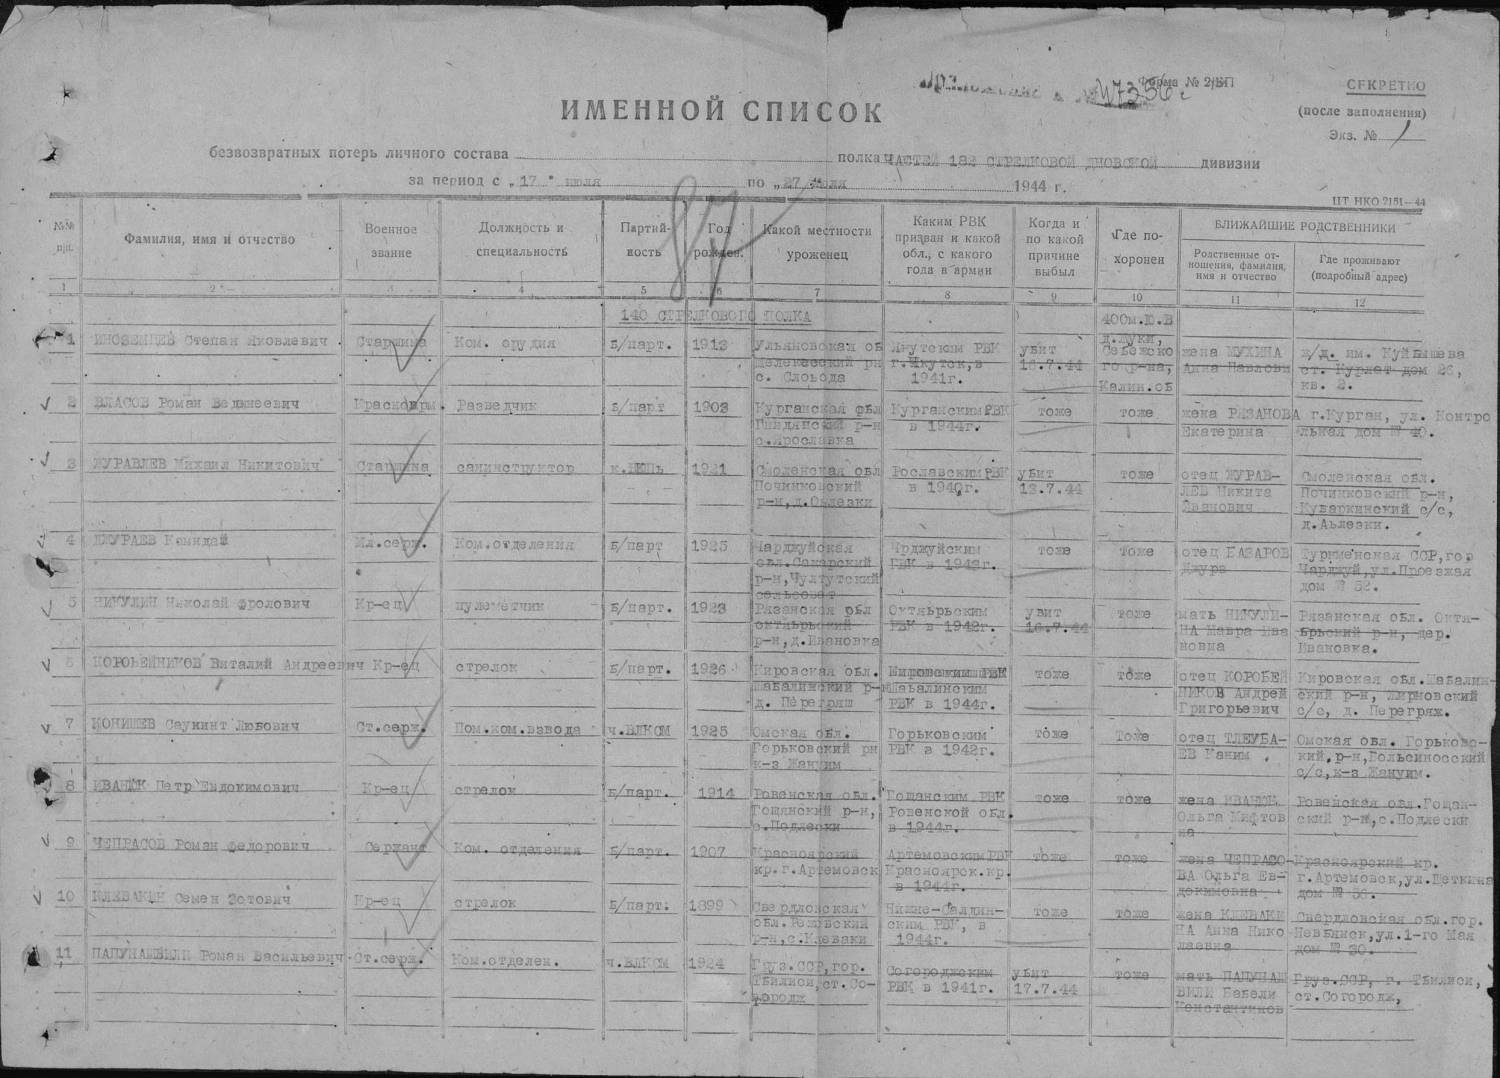 Форма № 2/БП
№ 47356с
СЕКРЕТНО
(после заполнения)
Экз. № 1
ИМЕННОЙ СПИСОК
безвозвратных потерь личного состава полка ЧАСТЕЙ 182 СТРЕЛКОВОЙ ДНОВСКОЙ дивизии
за период с „17" июля по „27" июля 1944 г.
87
ЦТ НКО 2151—44
№№ п/п. Фамилия, имя и отчество Военное звание Должность и специальность Партийность Год рожден. Какой местности уроженец Каким РВК призван и какой обл., с какого года в армии Когда и по какой причине выбыл Где похоронен БЛИЖАЙШИЕ РОДСТВЕННИКИ
Родственные отношения, фамилия, имя и отчество Где проживают (подробный адрес)
1 2 3 4 5 6 7 8 9 10 11 12
140 СТРЕЛКОВОГО ПОЛКА 400м.Ю.В
д.Луки,
1 ИНОЗЕМЦЕВ Степан Яковлевич Старшина Ком. орудия б/парт. 1913 Ульяновская об Якутским РВК убит Себежско жена МУХИНА ж/д. им. Куйбышева
Мелекесский рн г.Якутск, в 16.7.44 го р-на, Анна Павловн ст. Курлат дом 26,
с. Слобода 1941г. Калин.об кв. 2.
2 ВЛАСОВ Роман Веденеевич Красноарм. Разведчик б/парт 1903 Курганская обл Курганским РВК тоже тоже жена РЯЗАНОВА г.Курган, ул. Контро
р-н в 1944г. Екатерина льная дом № 40.
с.Ярославка
3 ЖУРАВЛЕВ Михаил Никитович Старшина санинструктор 1921 Смоленская обл Рославским РВК убит тоже отец ЖУРАВ- Смоленская обл.
Починковский в 1940г. 13.7.44 ЛЕВ Никита Починковский р-н,
р-н,д. Иванович Куваркинский с/с,
д.
4 ДЖУРАЕВ Камидай Мл.серж. Ком.отделения б/парт 1925 Чарджуйская Чрджуйским тоже тоже отец БАЗАРОВ Туркменская ССР,гор
обл.Сакарский РВК в 1943г. Джура Чарджуй,ул.Проезжая
р-н, дом № 52.
сельсовет
5 НИКУЛИН Николай Фролович Кр-ец пулеметчик б/парт. 1923 Рязанская обл Октябрьским убит тоже мать НИКУЛИ- Рязанская обл. Октя-
октябрьский РВК в 1942г. 16.7.44 НА Мавра Ива брьский р-н, дер.
р-н,д.Ивановка новна Ивановка.
6 КОРОБЕЙНИКОВ Виталий Андреевич Кр-ец стрелок б/парт. 1926 Кировская обл. тоже тоже отец КОРОБЕЙ Кировская обл.Шабалин-
Шабалинский р-н Шабалинским НИКОВ Андрей ский р-н, Жирновский
д. Перегряж РВК в 1944г. Григорьевич с/с, д. Перегряж.
7 КОНИШЕВ Саукинт Любович Ст.серж. Пом.ком.взвода ч.ВЛКСМ 1925 Омская обл. Горьковским тоже Тоже отец ТЛЕУБА- Омская обл. Горьковс-
Горьковский рн РВК в 1942г. ЕВ Каким кий,р-н,
к-з Жануим с/с,к-з Жануим.
8 ИВАНЮК Петр Евдокимович Кр-ец стрелок б/парт. 1914 Ровенская обл. Гощанским РВК тоже тоже жена ИВАНЮК Ровенская обл.Гощан-
Гощянский р-н, Ровенской обл. Ольга ский р-н,с.Подлески
с.Подлески в 1944г. на
9 ЧЕПРАСОВ Роман Федорович Сержант Ком. отделения б/парт. 1907 Красноярский Артемовским РВК тоже тоже жена ЧЕПРАСО- Красноярский кр.
кр.г.Артемовск Красноярск.кр. ВА Ольга Ев- г.Артемовск,ул.Щеткина
в 1944г. докимовна дом № 56.
10 КЛЕВАКИН Семен Зотович Кр-ец стрелок б/парт. 1899 Свердловская Нижне-Салдин- тоже тоже жена КЛЕВАКИ Свердловская обл.гор.
обл.Режевский ским РВК, в НА Анна Нико Невьянск,ул.1-го Мая
р-н,с.Клеваки 1944г. лаевна дом № 30.
11 ПАПУНАШВИЛИ Роман Васильевич Ст.серж. Ком.отделен. ч.ВЛКСМ 1924 Груз.ССР,гор. Согороджским убит тоже мать ПАПУНАШ Груз.ССР, г. Тбилиси,
Тбилиси,ст.Со- РВК в 1941г. 17.7.44 ВИЛИ Бабели ст.Согородж,
городж Константинов